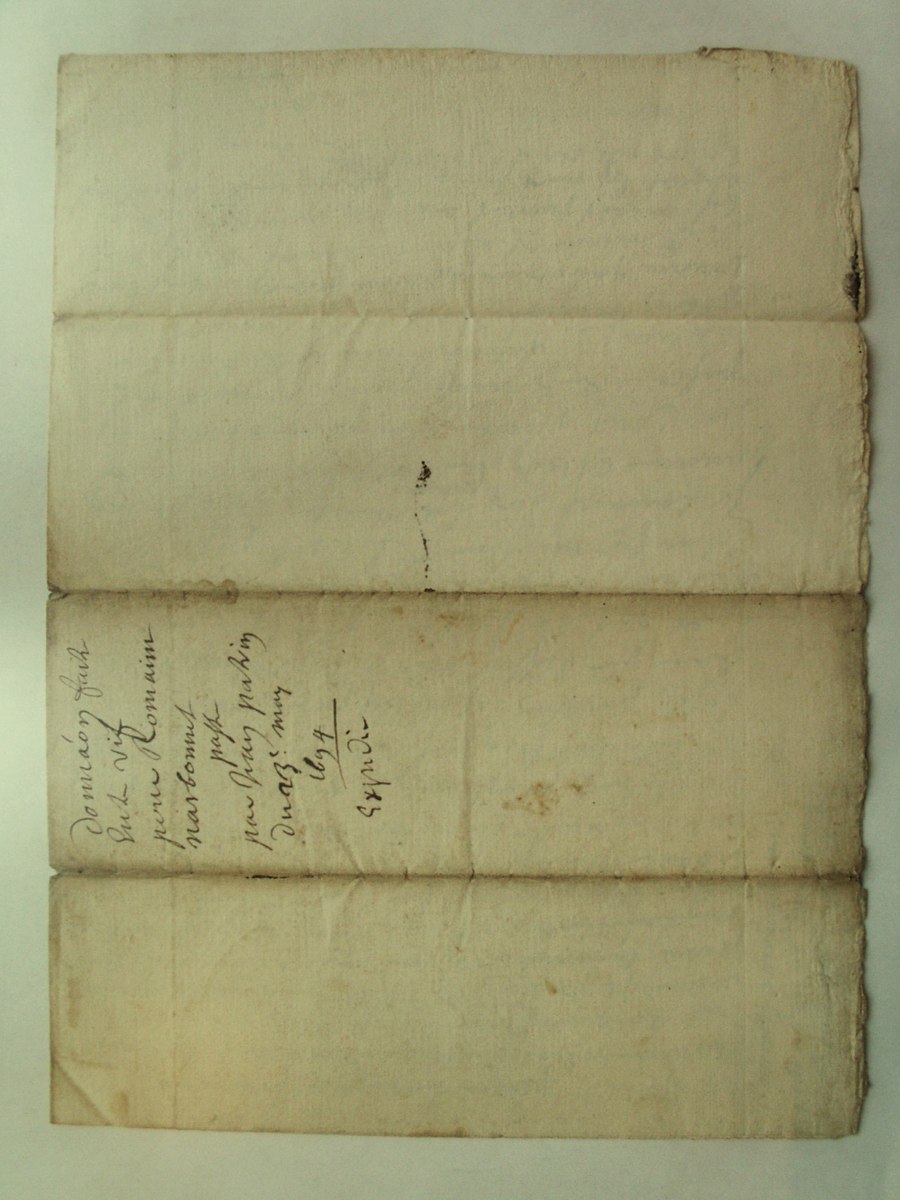 donnáon faite
Entre vif
pierre Romaim
narbonnet
passé
par Jean
du 23e may
1694
Expedie